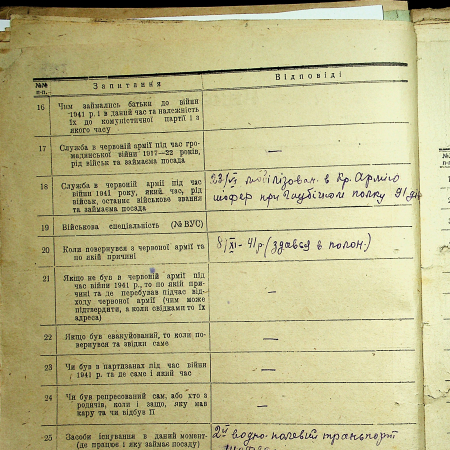 №№ п-п. Запитання Відповіді
16 Чим займались батьки до війни
1941 р. і в даний час та належність
їх до комуністичної партії і з
якого часу
17 Служба в червоній армії під час гро-
мадянської війни 1917—22 років,
рід військ та займаєма посада —
18 Служба в червоній армії під час
війни 1941 року, який час, рід
військ, останнє військове звання
та займаєма посада
23/VI мобілізован. в Кр. Армію
шофер при Гаубічном полку 91 див
19 Військова спеціальність (№ ВУС) —
20 Коли повернувся з червоної армії та
по якій причині
8/XI - 41 р (здався в полон.)
21 Якщо не був в червоній армії під
час війни 1941 р., то по якій при-
чині та де перебував підчас від-
ходу червоної армії (чим може
підтвердити, а коли свідками то їх
адреса) —
22 Якщо був евакуйований, то коли по-
вернувся та звідки саме —
23 Чи був в партизанах під час війни
1941 р. та де саме і який час —
24 Чи був репресований сам, або хто з
родичів, коли і защо, яку мав
кару та чи відбув її —
25 Засоби існування в даний момент
(де працює і яку займає посаду)
2й водно-палевій транспорт